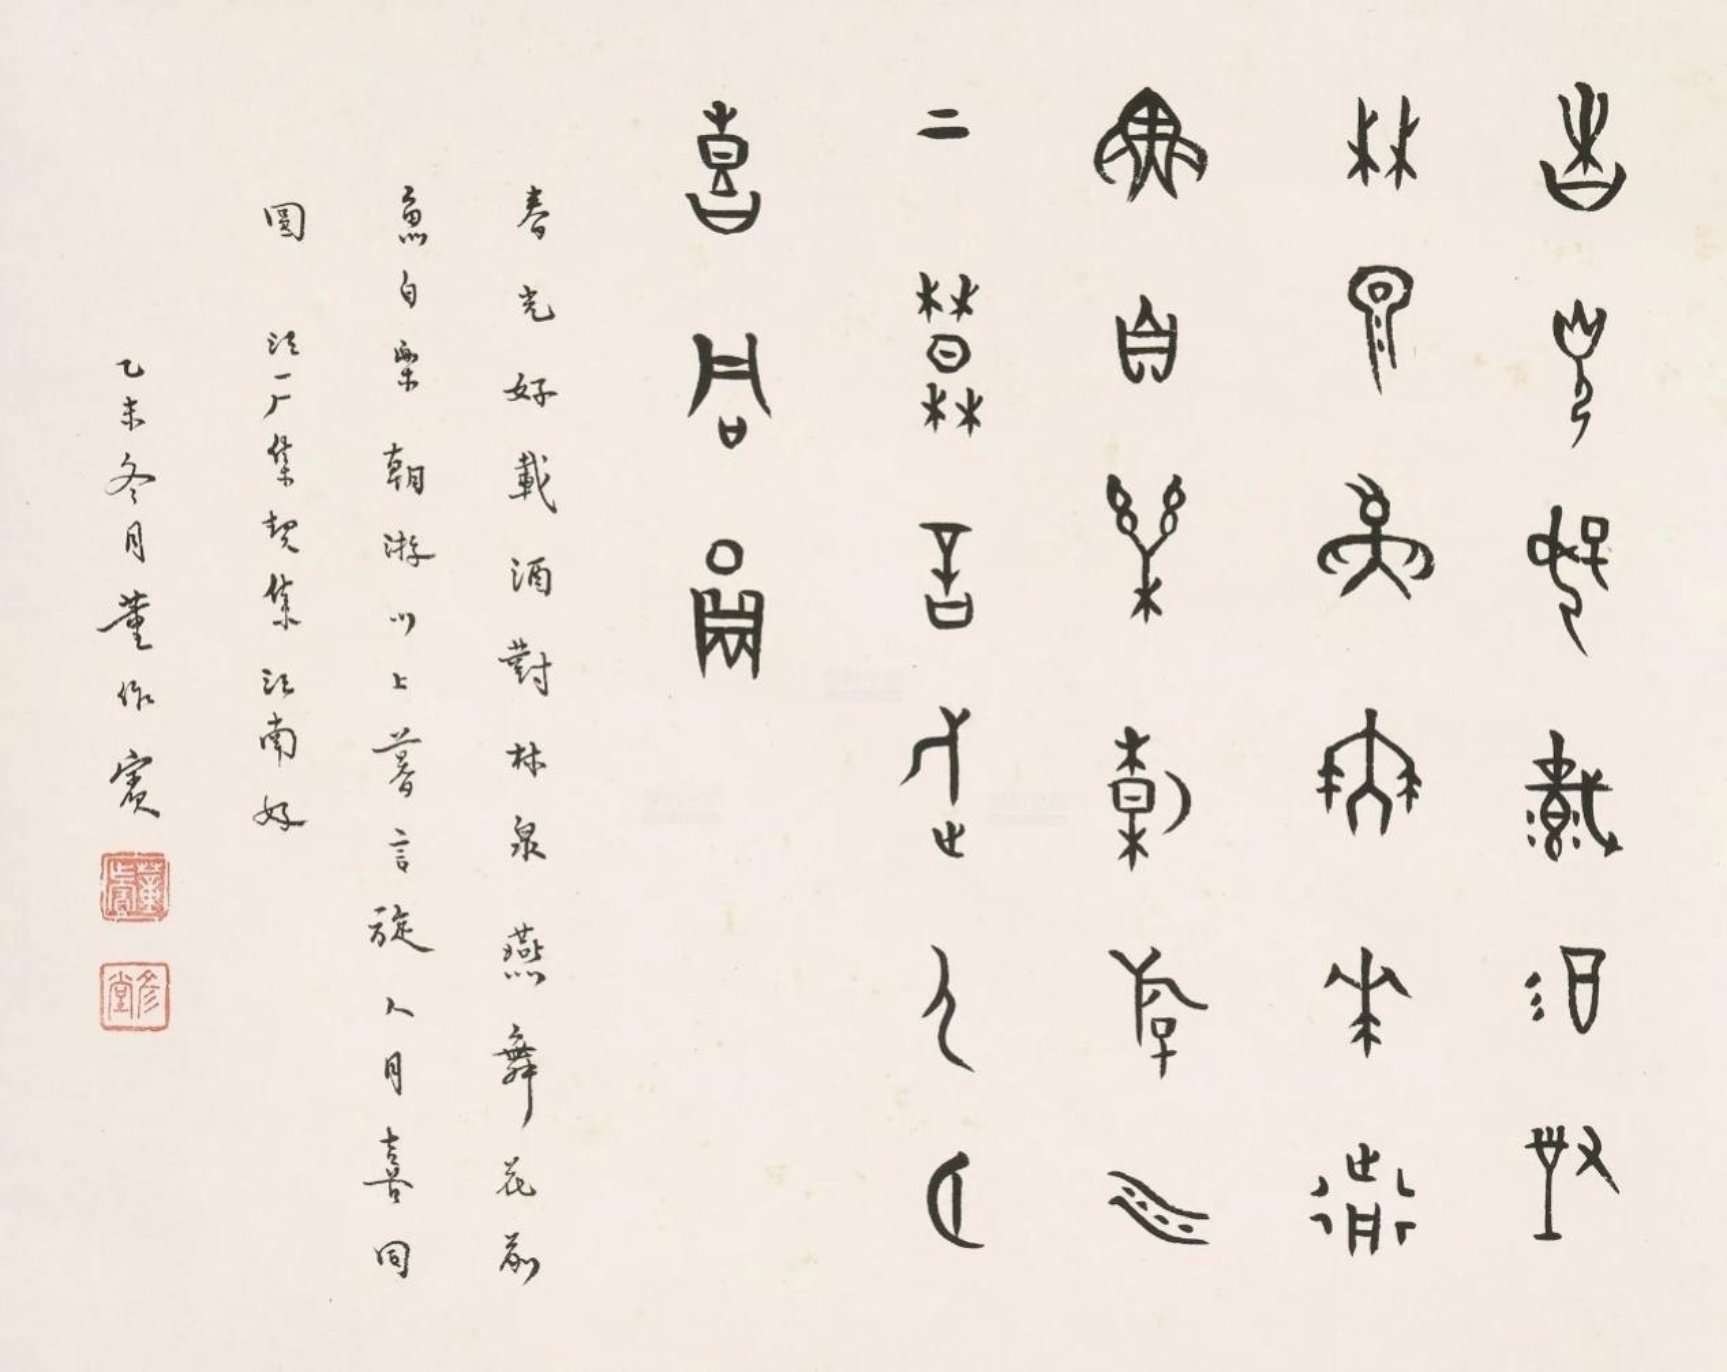 春光好載酒對
林泉燕舞花前
魚自樂朝游川
上暮言旋人月
喜同圓
春光好載酒對林泉燕舞花前
魚自樂朝游川上暮言旋人月喜同
圓 汪一厂集契集江南好
乙未冬月董作賓
董作賓
彥堂